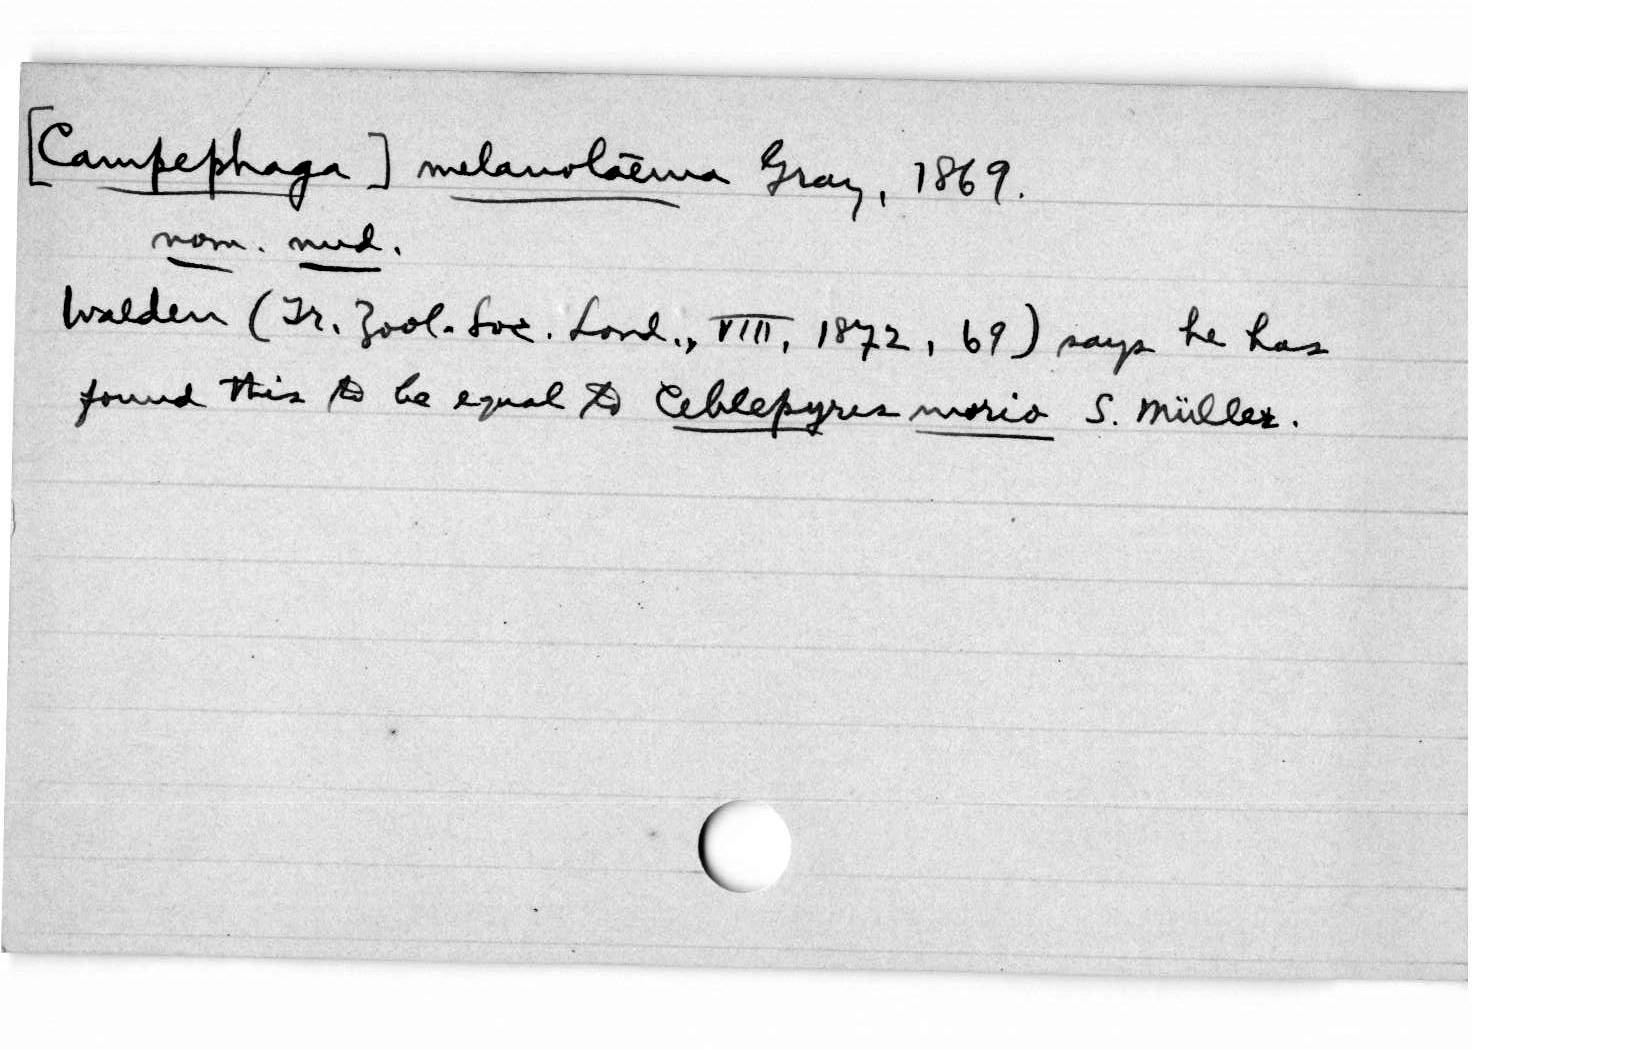 [Campephaga] melanolaēma Gray, 1869.
nom. nud.
Walden (Tr. Zool. Soc. Lond., VIII, 1872, 69) says he has
found this to be equal to Ceblepyres morio S. Müller.